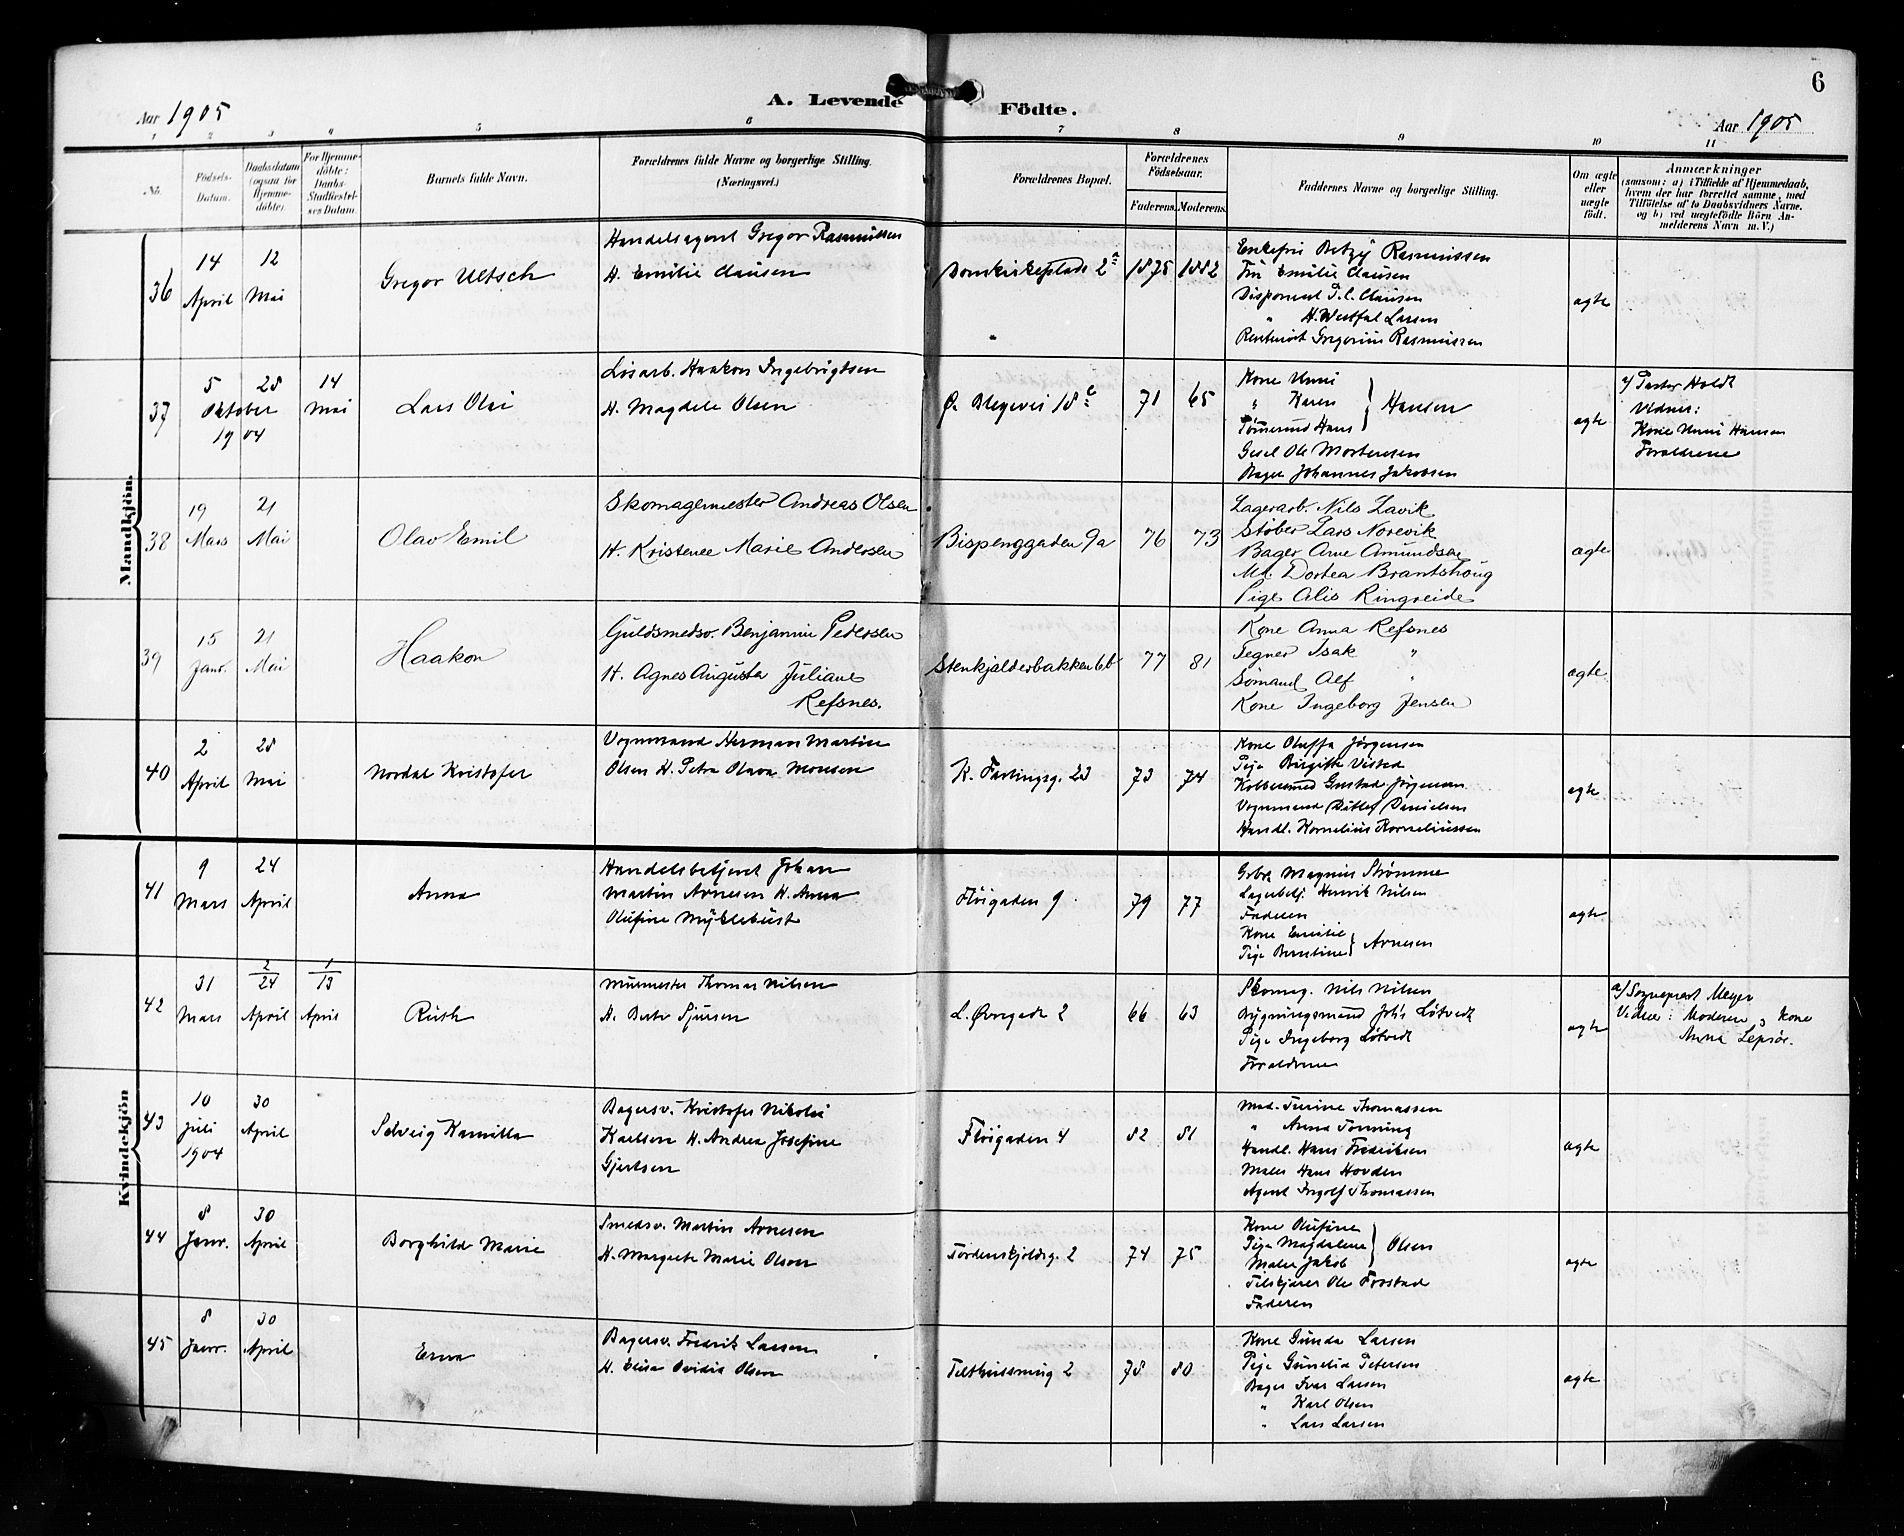 6
A. Levende Födte.
Aar 1905
Aar 1905
1 2 3 4 5 6 7 8 9 10 11
No.
Födsels-Datum.
Daabsdatum (ogsaa for Hjemmedöbte).
For Hjemmedöbte: Daabs-Stadfæstelses Datum.
Barnets fulde Navn.
Forældrenes fulde Navne og borgerlige Stilling.
(Næringsvei.)
Forældrenes Bopæl.
Forældrenes Födselsaar.
Faderens. Moderens.
Faddernes Navne og borgerlige Stilling.
Om ægte eller uægte födt.
Anmærkninger
(saasom: a) i Tilfælde af Hjemmedaab, hvem der har forrettet samme, med Tilföielse af to Daabsvidners Navne, og b) ved uægtefödte Börn Anmelderens Navn m. V.)
Mandkjön.
36
14 April
12 Mai
Gregor Ultsch
Handelsagent Gregor Rasmussen
H. Emilie Clausen
Domkirkeplads 2a
1875 1882
Enkefru Betzy Rasmussen
Fru Emilie Clausen
Disponent P. C. Clausen
" H. Westfal Larsen
Gregorius Rasmussen
ægte
37
5 Oktober 1904
28
14 Mai
Lars Olai
Løsarb. Haakon Ingebrigtsen
H. Magdele Olsen
Ø. Blegevei 18c
71 65
Kone Unni
" Karen } Hansen
Tømmermd Hans
Gesel Ole Mortensen
Bager Johannes Jakobsen
ægte
a/ Pastor Holdt
Vidner:
Kone Unni Hansen
Forældrene
38
19 Mars
21 Mai
Olav Emil
Skomagermester Andreas Olsen
H. Kristence Marie Andersen
Bispenggaden 9a
76 73
Lagerarb. Nils Lavik
Støber Lars Norevik
Bager Arne Amundsen
Md. Dortea Brantshoug
Pige Alis Ringreide
ægte
39
15 Janr.
21 Mai
Haakon
Guldsmedsv. Benjamin Pedersen
H. Agnes Augusta Juliane
Refsnes.
Stenkjælderbakken 6b
77 81
Kone Anna Refsnes
Tegner Isak "
Sømand Alf "
Kone Ingeborg Jensen
ægte
40
2 April
28 Mai
Nordal Kristofer
Vognmand Herman Martin
Olsen H. Petra Olava Monsen
K. Fastingsg. 23
73 74
Kone Oluffa Jørgensen
Pige Birgitte Vestad
Gustav Jørgensen
Vognmand Ditlef Danielsen
Handl. Kornelius Korneliussen
ægte
Kvindekjön
41
9 Mars
24 April
Anna
Handelsbetjent Johan
Martin Arnesen H. Anna
Olufine Myklebust
Fløigaden 9
79 77
Grbr. Magnus Strømme
Lagerbetj. Henrik Nilsen
Faderen
Kone Emilie
Pige Berntine } Arnesen
ægte
42
31 Mars
2/24 April
1/13 April
Ruth
Murmester Thomas Nilsen
H. Berte Sjursen
L. Øvregade 2
66 63
Skomag. Nils Nilsen
Bygningsmand Johs Løtvedt
Pige Ingeborg Løtvedt
Forældrene
ægte
a/ Sogneprest Meyer
Vidner: Moderen og Kone
Anna Lepsøe.
43
10 Juli 1904
30 April
Solveig Kamilla
Bagersv. Kristofer Nikolai
Karlsen H. Andrea Josefine
Gjertsen
Fløigaden 4
82 81
Mad. Turine Thomassen
" Anna Tonning
Handl. Hans Fredriksen
Maler Hans Hovden
Agent Ingolf Thomassen
ægte
44
8 Janr.
30 April
Borghild Marie
Smedsv. Martin Arnesen
H. Margrete Marie Olsen
Tordenskjoldsg. 2
74 75
Kone Olufine
Pige Magdalene } Olsen
Maler Jakob
Tilskjærer Ole Frostad
Faderen
ægte
45
8 Janr.
30 April
Erna
Bagersv. Fredrik Larsen
H. Elisa Ovidia Olsen
Telthussmug 2
78 80
Kone Gunda Larsen
Pige Gunelia Petersen
Bager Ivar Larsen
" Karl Olsen
" Lars Larsen
ægte